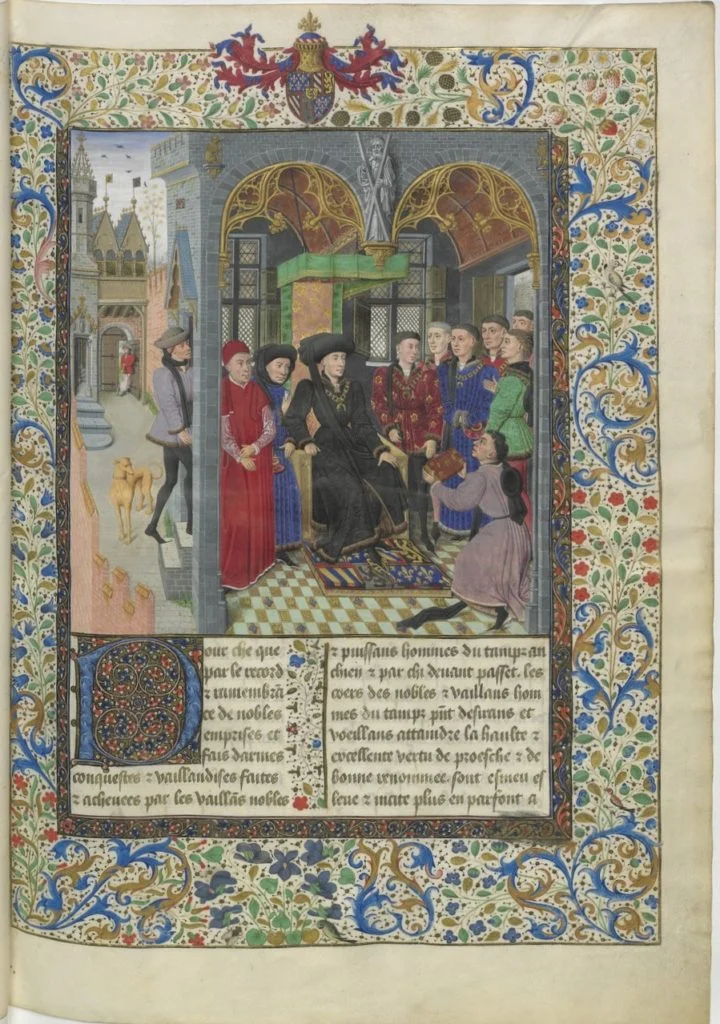 Pour che que
par le record
⁊ ramembrā
ce de nobles
emprises et
fais darmes
conquestes ⁊ vaillandises faites
⁊ acheuees par les vaillās nobles
⁊ puissans hommes du tampz an
chien ⁊ par chi deuant passet. les
coers des nobles ⁊ vaillans hom
mes du tampz pñt desirans et
voeillans attaindre la haulte ⁊
excellente vertu de proesche ⁊ de
bonne renommee. sont esmeu es
leue ⁊ incite plus en parfont a